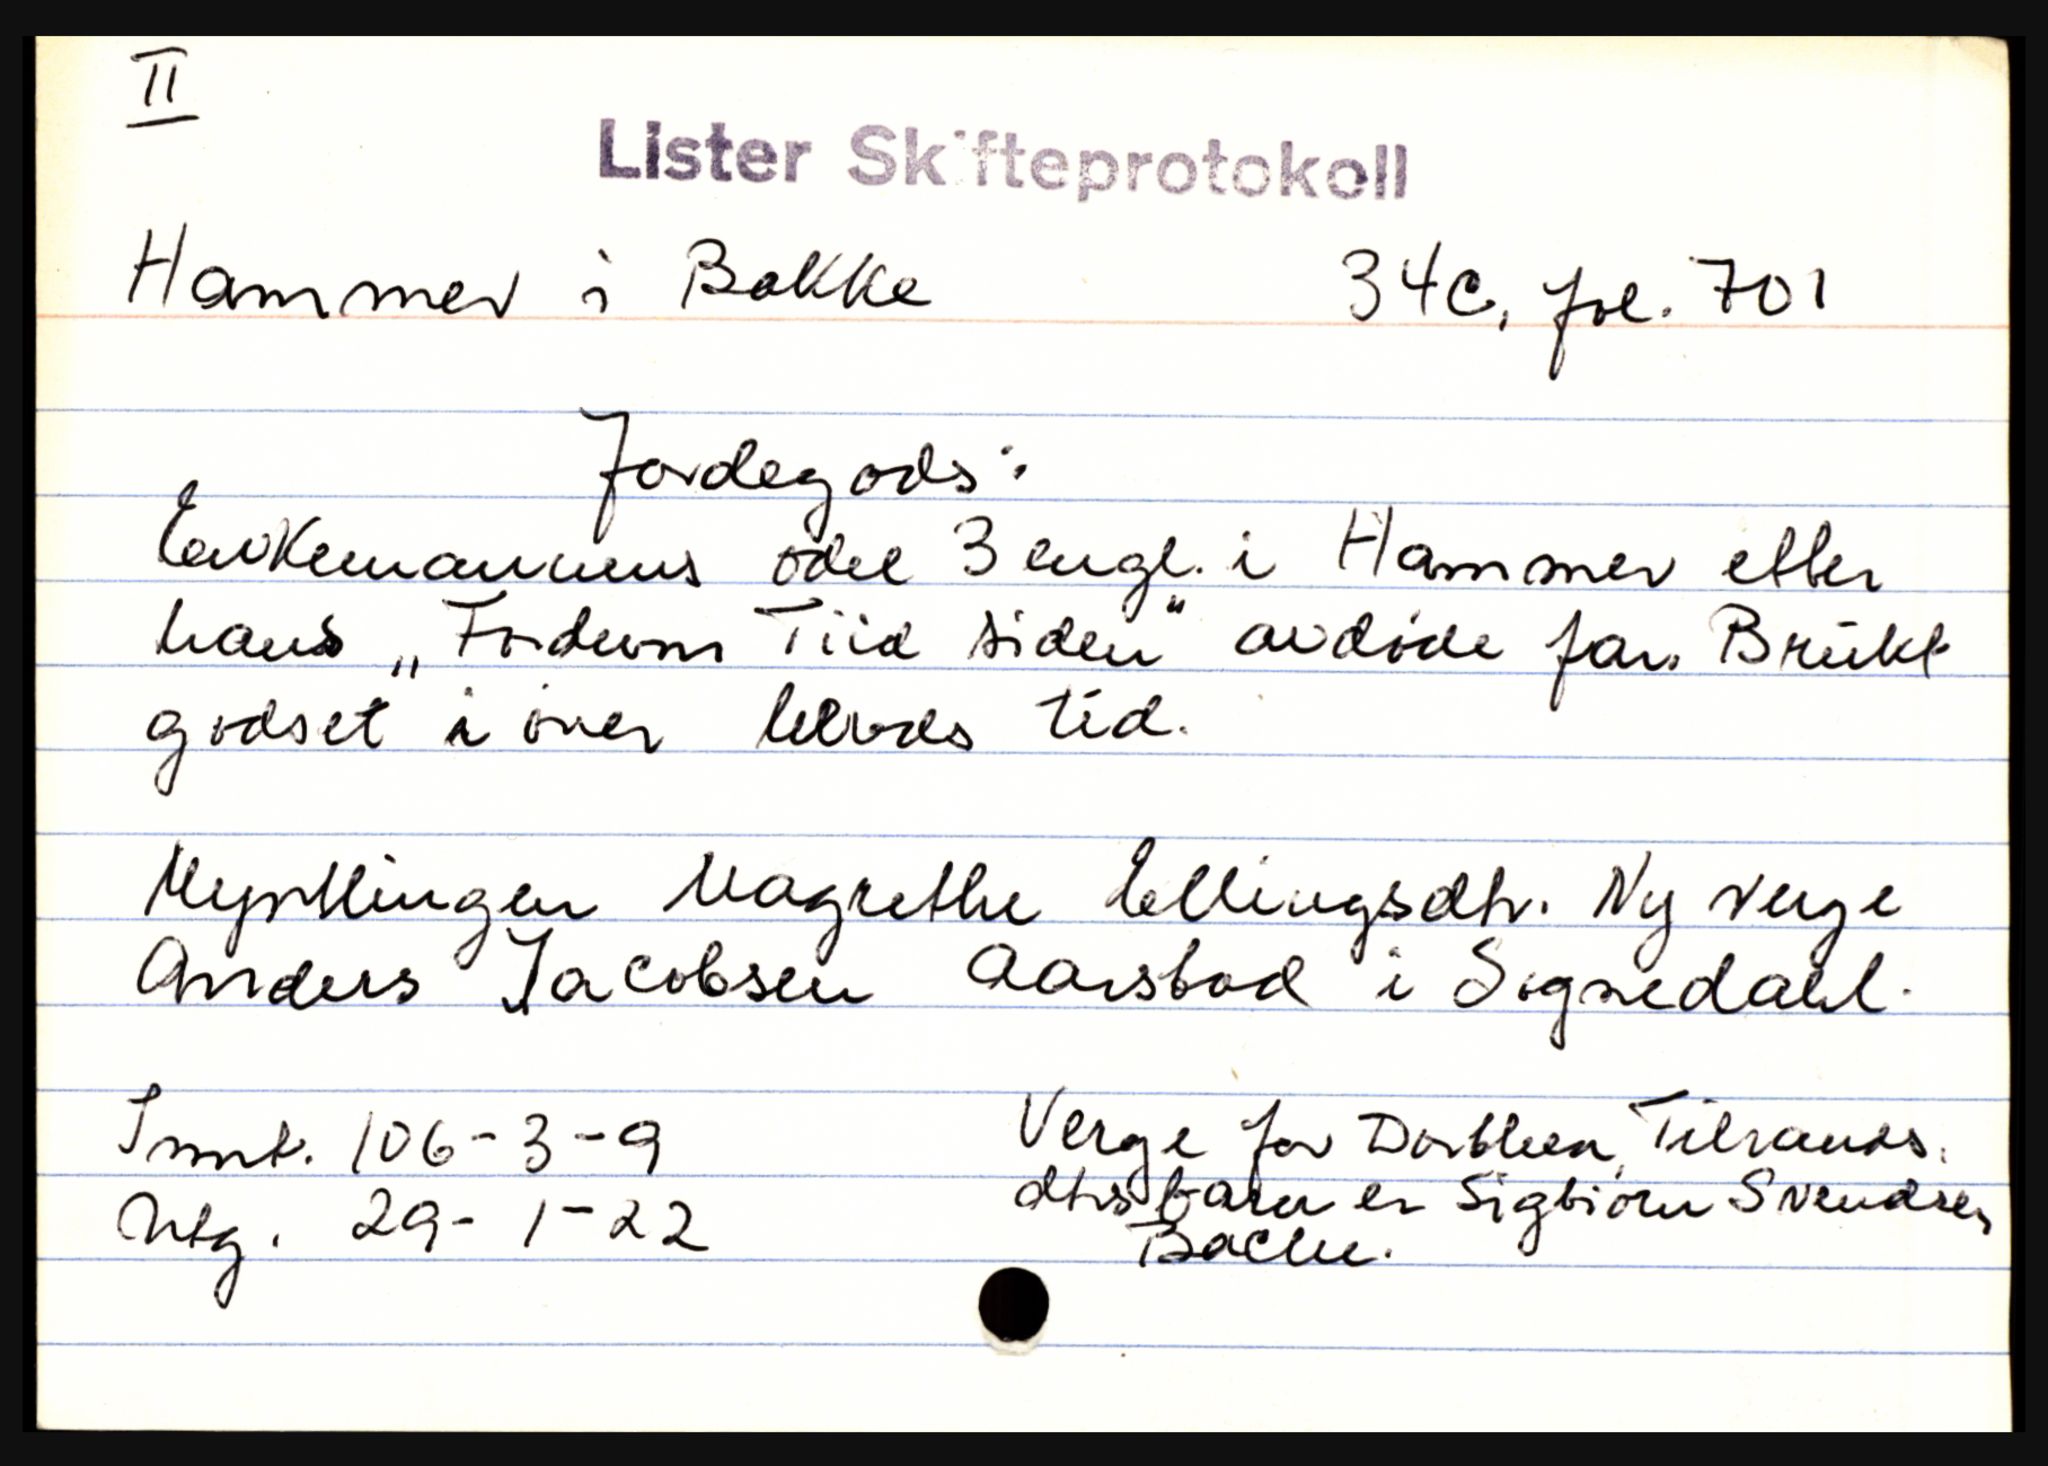 II
Lister Skifteprotokoll
Hammer i Bakke 34c, fol. 701
Jordegods:
Enkemannens odel 3 engl. i Hammer etter
hans „Fordum Tiid siden" avdøde far. Brukt
godset i over hevds tid.
Myndlingen Magrethe Ellingsdtr. Ny verge
Anders Jacobsen Aarsbod i Sognedahl.
Innt. 106-3-9
Utg. 29-1-22
Verge for Dorthea Tilrands
dtrs barn er Sigbiørn Svendsen
Bache.